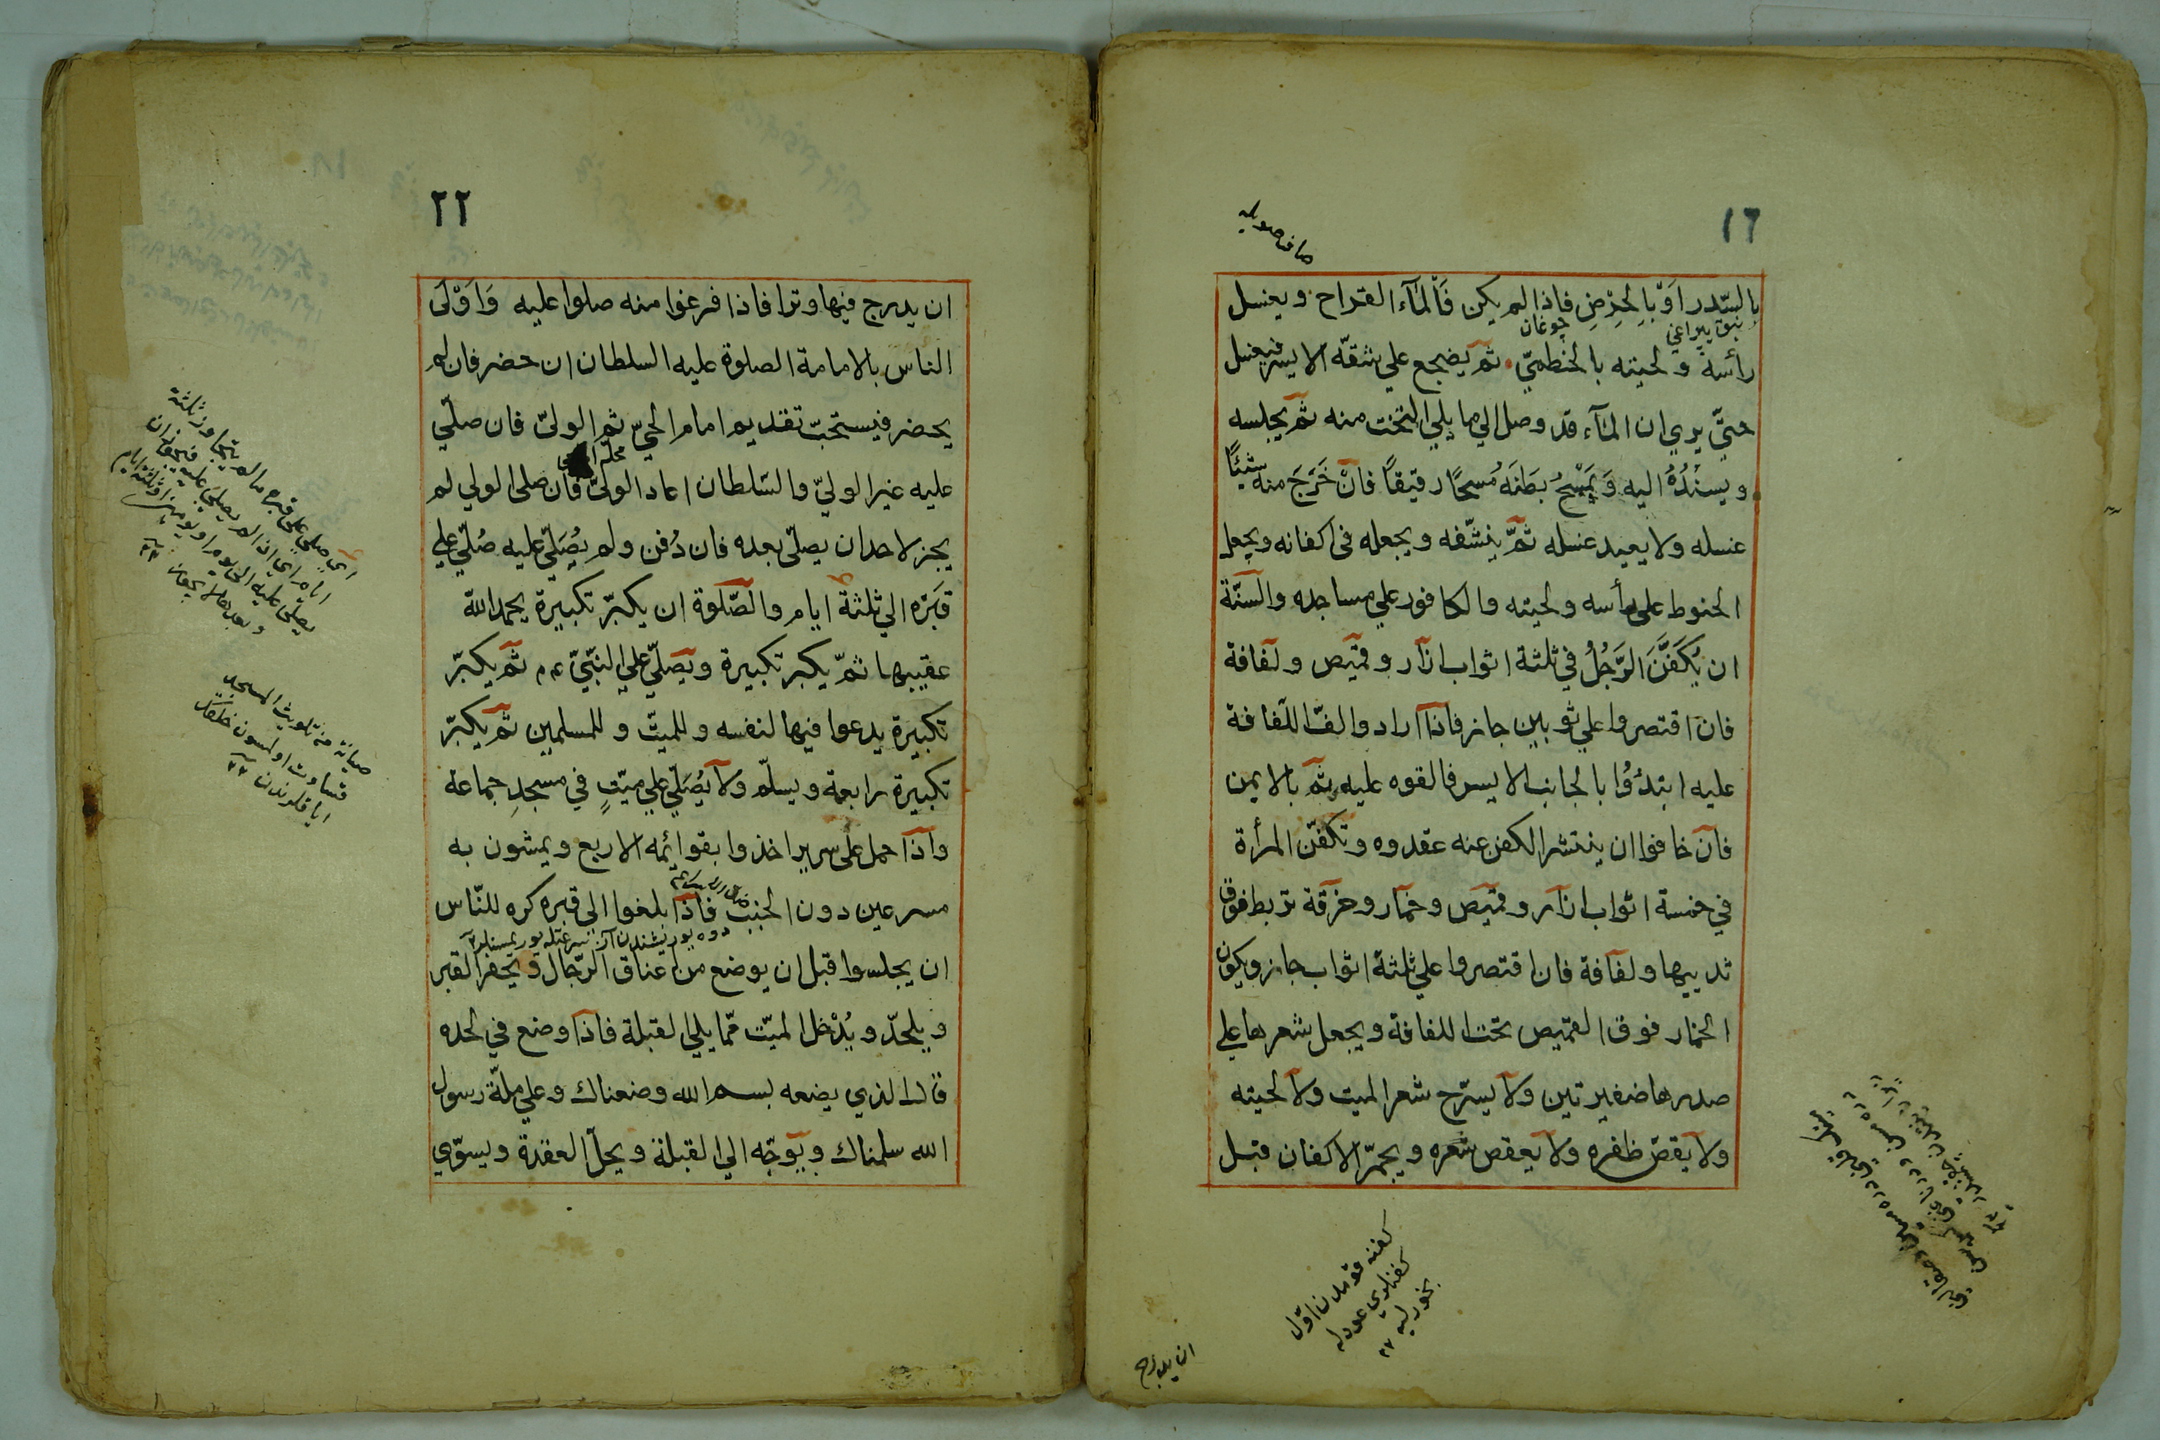 ١٦
صافی صویله
بالسّدر اَوْ بِالحِرْضِ فاذا لم يكن فَالْمَآء القراح ويغسل
نبق يپراغي چوغان
رأسهُ ولحيته بالخطميّ ثم يضجع علي شقّه الايسر فيغسل
حتيّ يري ان المآء قد وصل الي ما يلي التخت منه ثم يجلسه
ويسنْدُهُ اليه وَيَمْسَحُ بطنَه مُسحًا رقيقاً فانْ خَرَجَ منه شيئاً
غسله ولا يعيد غسله ثمّ ينشّفه ويجعله فى اكفانه ويجعل
الحنوط على رأسه ولحيته والكافور علي مساجده والسنّة
ان يُكَفَّنَ الرَّجُلُ في ثلثة اثواب ازار وقميص ولفافة
فان اقتصروا علي ثوبين جاز فاذا ارادوا لفّ اللّفافة
عليه ابتدؤُا بالجانب الايسر فالقوه عليه ثم بالايمن
فان خافوا ان ينتشر الكفن عنه عقدوه وتكفّن المرأة
في خمسة اثواب ازار وقميص وخمار وخرقة تربط فوق
ثدييها ولفافة فان اقتصروا علي ثلثة اثواب جاز ويكون
الخمار فوق القميص تحت اللفافة ويجعل شعرها علي
صدرها ضفيرتين ولا يسرّح شعر الميت ولا لحيته
ولا يقصّ ظفره ولا يعقص شعره ويجمّر الاكفان قبل
كفنه قومدن اوّل
كفنلري عودله
بخورليه
ان يدرج
٢٢
ان يدرج فيها وترا فاذا فرغوا منه صلوا عليه وَاَوْلَى
الناس بالامامة الصلوة عليه السلطان ان حضر فان لم
يحضر فيستحبّ تقديم امام الحيّ ثم الوليّ فان صلّي
عليه غير الوليّ والسّلطان اعاد الوليّ فان صلى الولي لم
يجز لاحد ان يصلّي بعده فان دُفن ولم يُصَلّي عليه صُلّي علي
قبَره الي ثلثة ايام والصّلوة ان يكبّر تكبيرة يحمد اللّه
عقيبها ثمّ يكبر تكبيرة ويصلّي علي النبّيّ ءم ثم يكبّر
تكبيرة يدعوا فيها لنفسه وللميّت وللمسلمين ثم يكبّر
تكبيرة رابعة ويسلّم ولا يُصَلّي علي ميّتٍ في مسجدِ جماعة
واذا حمل على سرير اخذوا بقوائمه الاربع ويمشون به
مسرعين دون الخبب فاذا بلغوا الي قبره كره للنّاس
ان يجلسوا قبل ان يوضع من اعناق الرّجال ويحفر القبر
ويلحدّ ويُدْخل الميّت ممّا يلي القبلة فاذا وضع في لحده
قال الذي يضعه بسم الله وضعناك وعلي ملّة رسول
الله سلمناك ويوجّه الي القبلة ويحلّ العقدة ويسوّي
اي صلي علي قبره ما لم يتجاوز ثلثة
ايام اي اذا لم يصلي عليه فيجوز ان
يصلي عليه الي يوم او يومين او ثلثة ايام
وبعدها لا يجوز
صيانة من تلويث المسجد